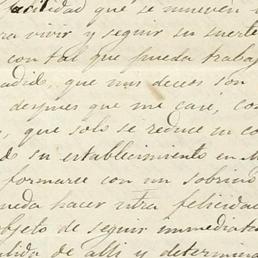 facilidad que se mueven
vivir y seguir su suerte
con tal que pueda traba
que mis deceos son
despues que me casé, con
, que solo se reduce su co
su establecimiento en
formarce con un sobrino
hacer otra felicidad
objeto de seguir immediata
de alli y determina